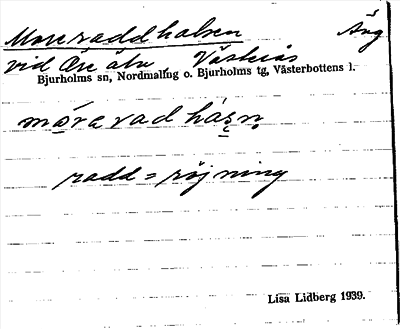 Moreraddhalsen Äng
vid Öre älv Västerås
Bjurholms sn, Nordmaling o. Bjurholms tg, Västerbottens l.
móra rad hásn
radd = röjning
Lisa Lidberg 1939.